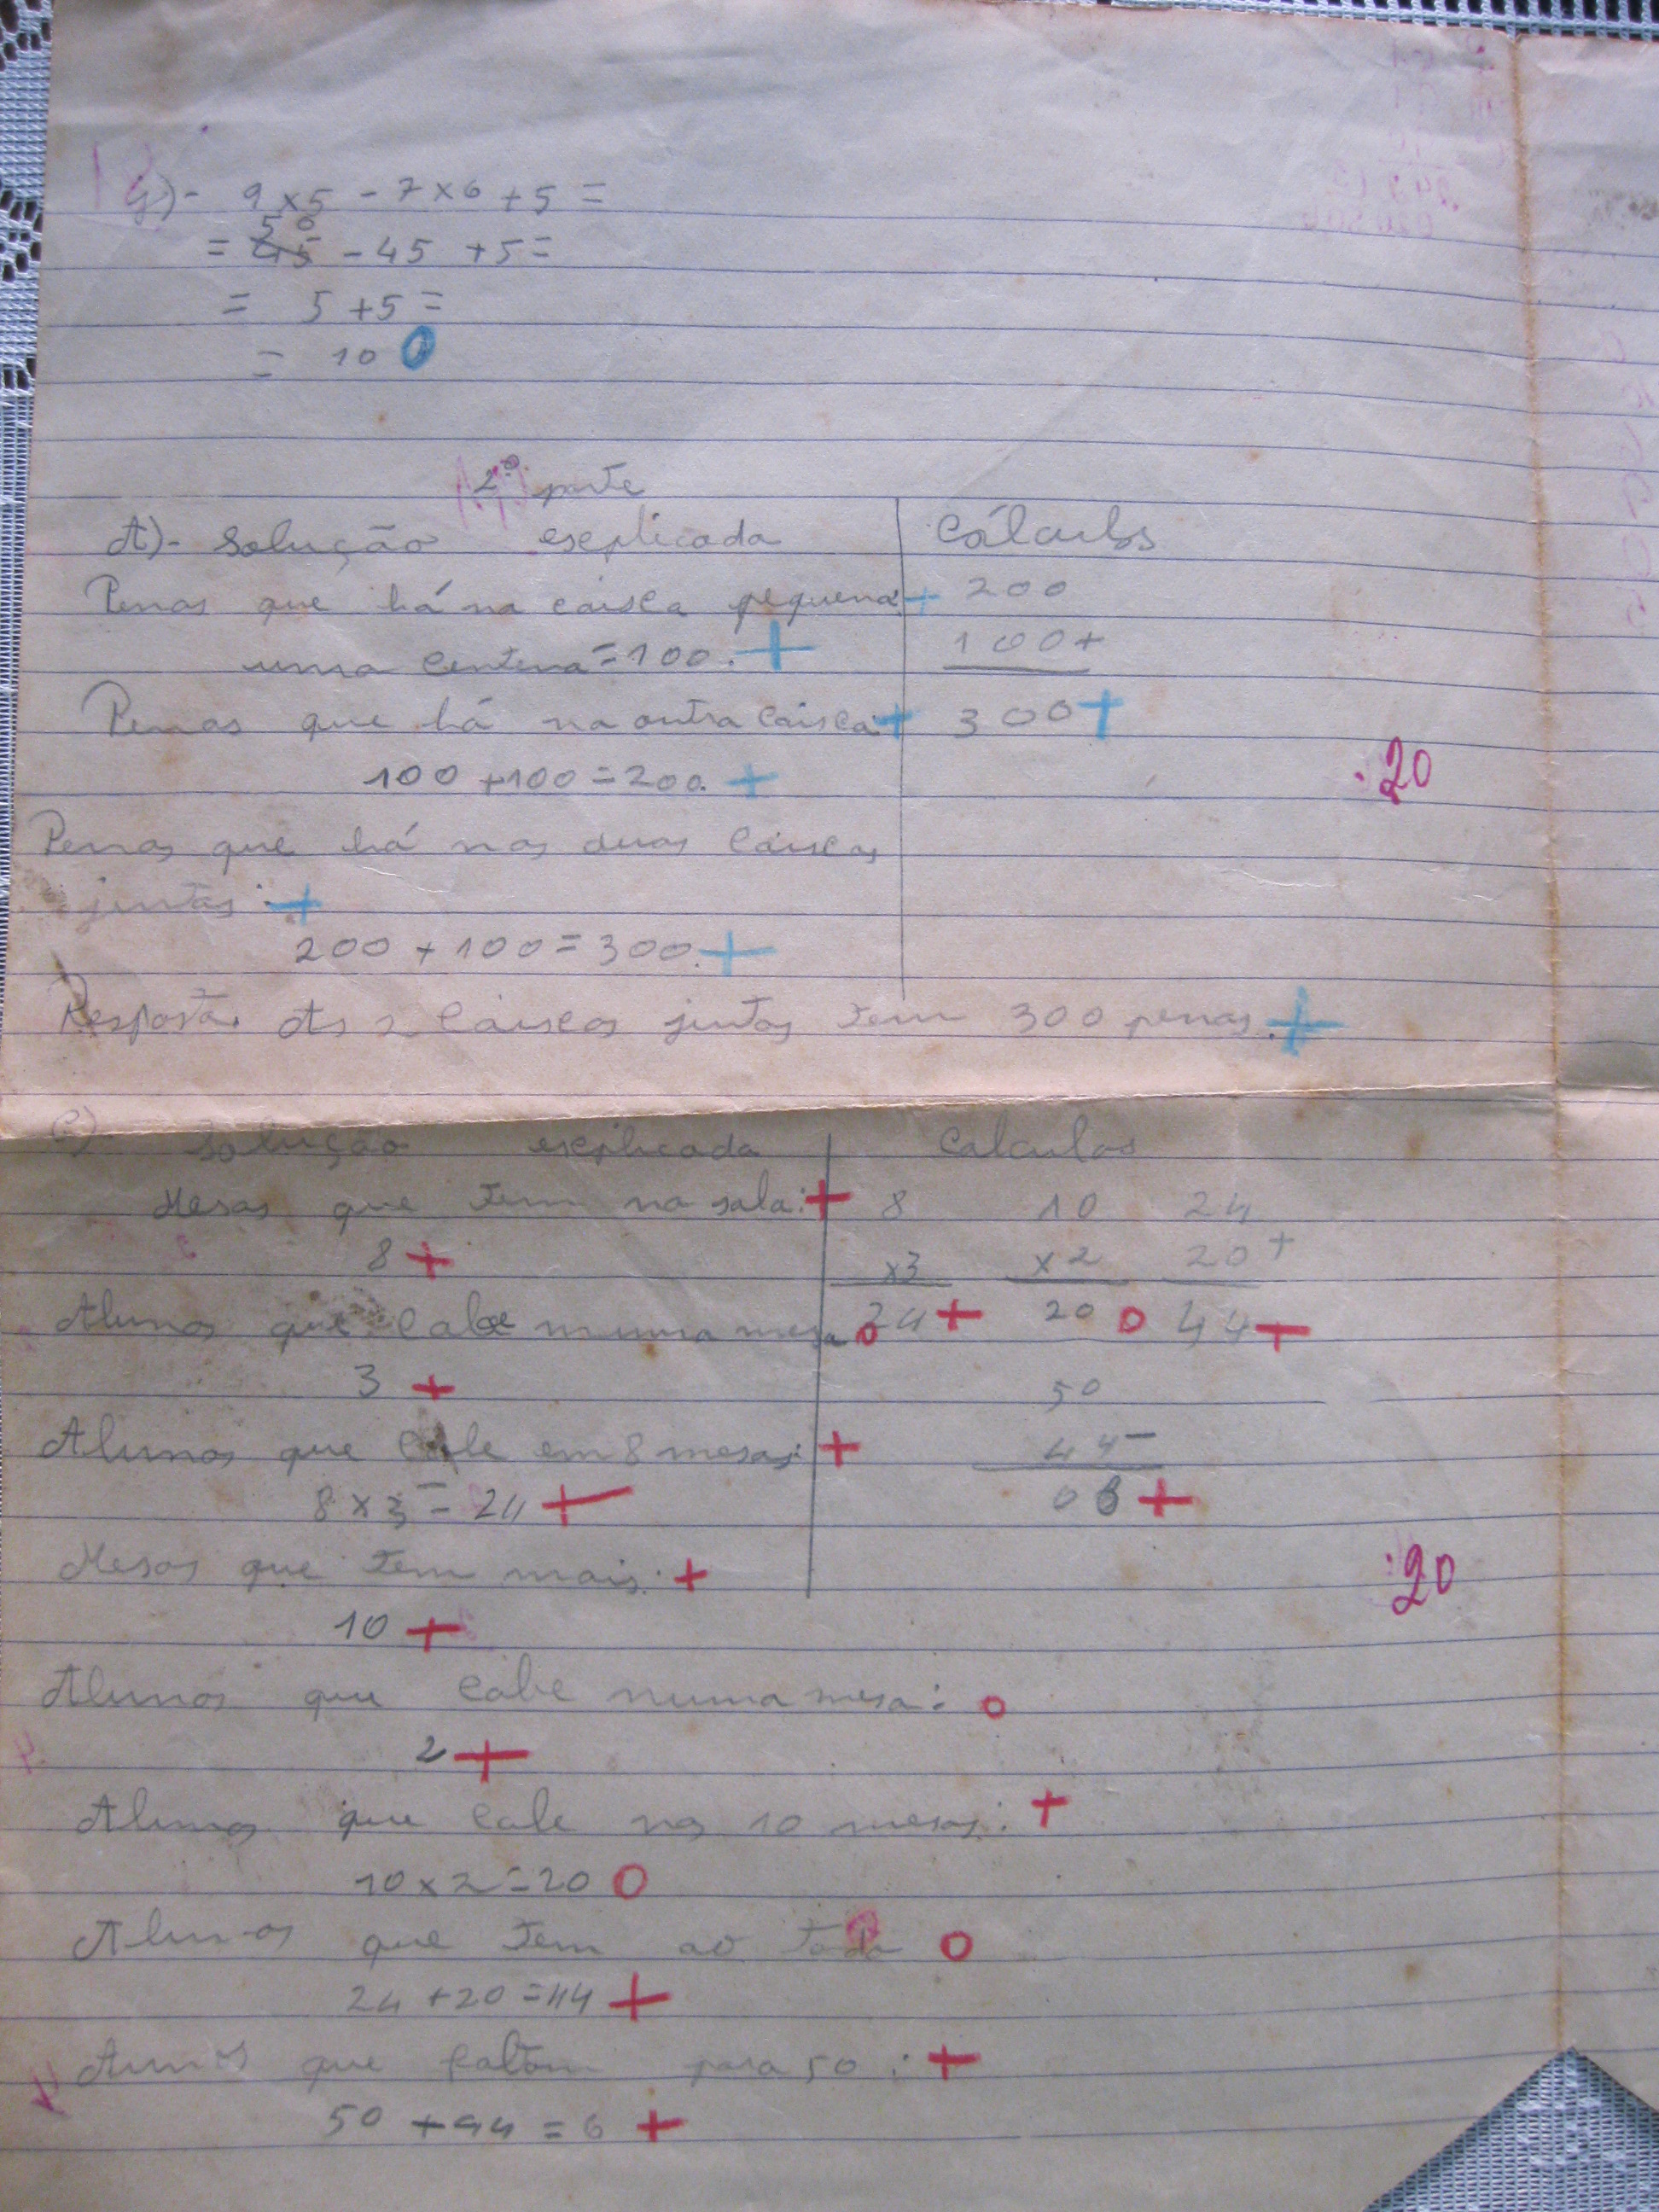 g)- 9 x 5 - 7 x 6 + 5 =
= 50 - 45 + 5 =
= 5 + 5 =
= 10 0
2ª parte
A)- Solução explicada
Cálculos
Penas que há na caixa pequena: +
200
uma centena = 100. +
100 +
Penas que há na outra caixa: +
300 +
100 + 100 = 200. +
.20
Penas que há nas duas caixas
juntas: +
200 + 100 = 300. +
Resposta. As 2 caixas juntas tem 300 penas. +
C)- Solução explicada
Calculos
Mesas que tem na sala: +
8 10 24
8 +
x3 x2 20 +
Alunos que cabe numa mesa 0
24 + 20 0 44 +
3 +
50
Alunos que cabe em 8 mesas: +
44 -
8 x 3 = 24 +
06 +
Mesas que tem mais: +
:20
10 +
Alunos que cabe numa mesa: 0
2 +
Alunos que cabe nas 10 mesas: +
10 x 2 = 20 0
Alunos que tem ao todo 0
24 + 20 = 44 +
que faltam para 50: +
50 + 44 = 6 +